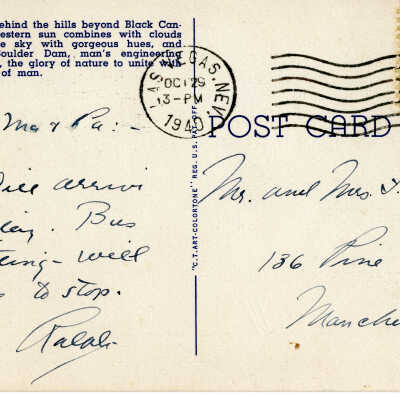 ehind the hills beyond Black Can-
estern sun combines with clouds
e sky with gorgeous hues, and
oulder Dam, man's engineering
, the glory of nature to unite with
of man.
LAS VEGAS, NEV.
OCT 29
3-PM
1940
POST CARD
"C.T.ART-COLORTONE" REG. U.S. PAT. OFF.
Ma & Pa:-
ill arrive
Bus
will
to stop.
Ralph
Mr. and Mrs.
136 Pine
Manche